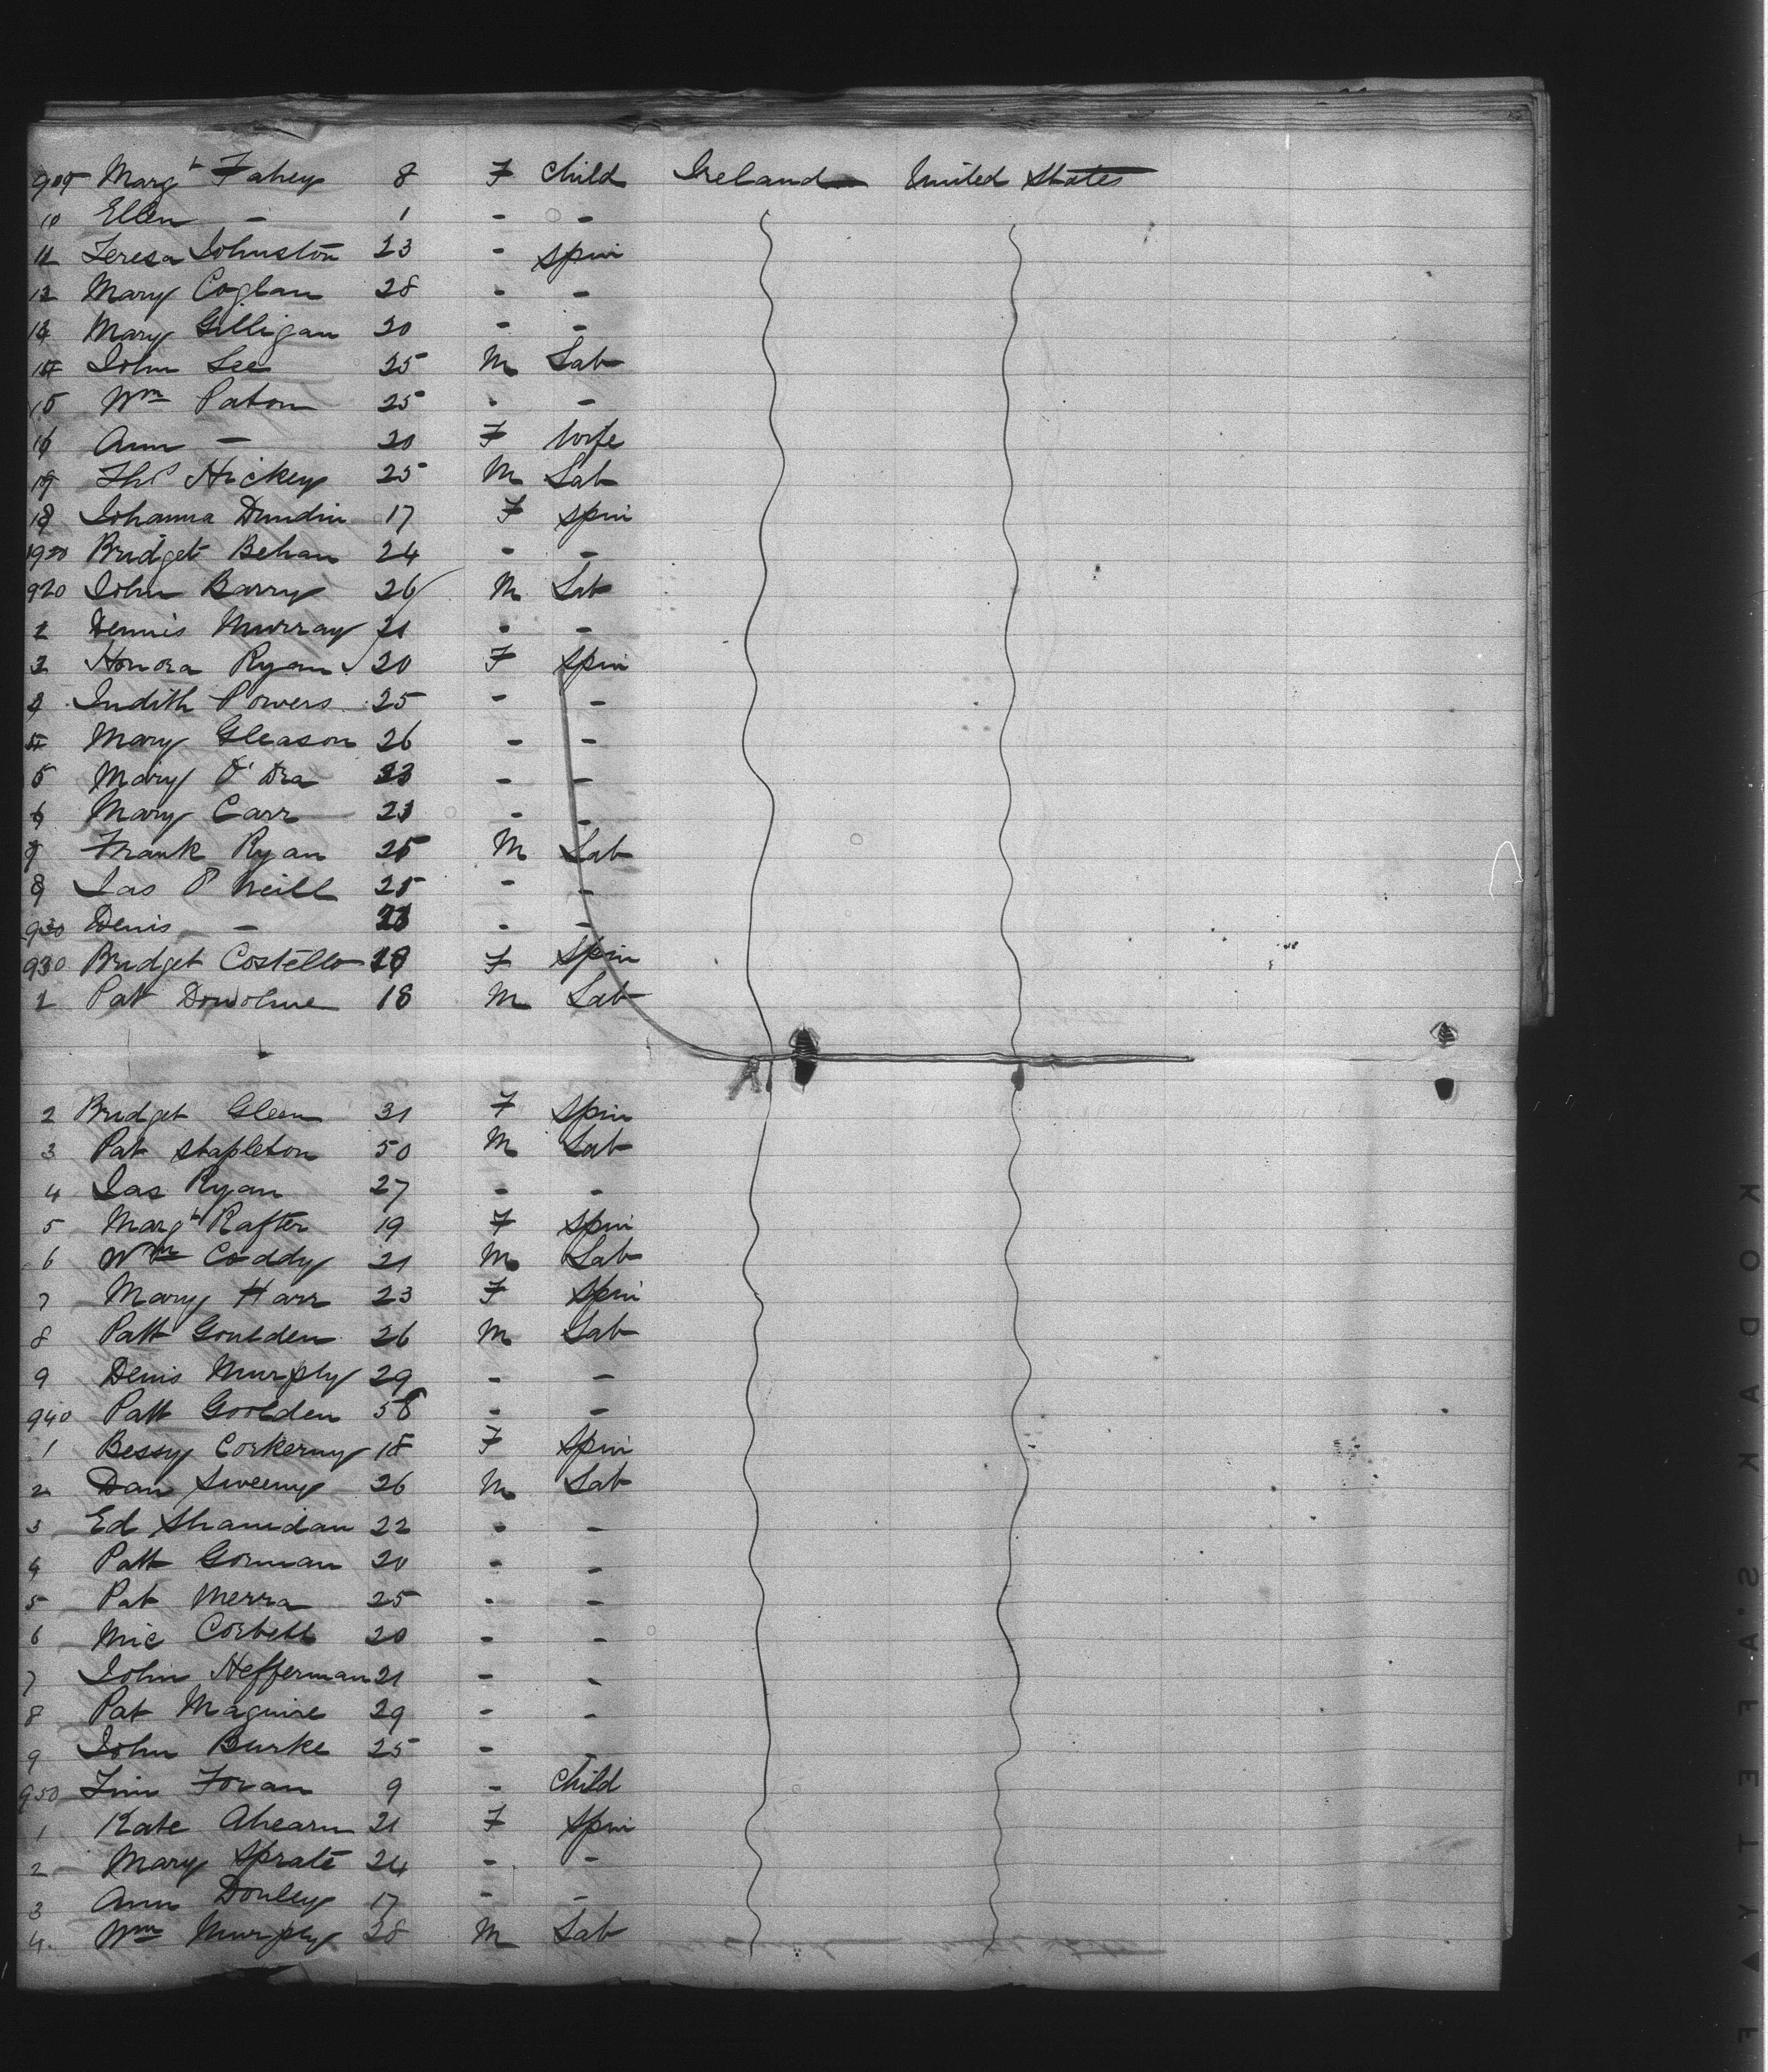 909 Margt Fahey 8 F Child Ireland United States
10 Ellen - 1 - -
11 Teresa Johnston 23 - Spin
12 Mary Coglan 28 - -
13 Mary Gilligan 20 - -
14 John Lee 25 M Lab
15 Wm Paton 25 - -
16 Ann - 20 F Wife
Thos Hickey 25 M Lab
18 Johanna Dundin 17 F Spin
Bridget Behan 24 - -
920 John Barry 26 M Lab
1 Dennis Murray 21 - -
2 Honora Ryan 20 F Spin
Judith Powers 25 - -
Mary Gleason 26 - -
5 Mary O'Dra 23 - -
6 Mary Carr 23 - -
Frank Ryan 25 M Lab
8 Jas O'Neill 25 - -
Denis - - -
930 Bridget Costello 18 F Spin
1 Pat Donohue 18 M Lab
2 Bridget Gleen 31 F Spin
3 Pat Stapleton 50 M Lab
4 Jas Ryan 27 - -
5 Margt Rafter 19 F Spin
6 Wm Coddy 21 M Lab
7 Mary Harr 23 F Spin
8 Patt Goulden 26 M Lab
9 Denis Murphy 29 - -
940 Patt Goolden 58 - -
1 Bessy Corkerny 18 F Spin
2 Dan Sweeny 26 M Lab
3 Ed Shanidan 22 - -
4 Patt Gorman 20 - -
5 Pat Merra 25 - -
6 Mic Corbett 20 - -
7 John Hefferman 21 - -
8 Pat Maguire 29 - -
9 John Burke 25 - -
950 Tim Foran 9 - Child
1 Kate Ahearn 21 F Spin
2 Mary Spratt 24 - -
3 Ann Donley 17 - -
4 Wm Murphy 28 M Lab
KODAK SAFETY F